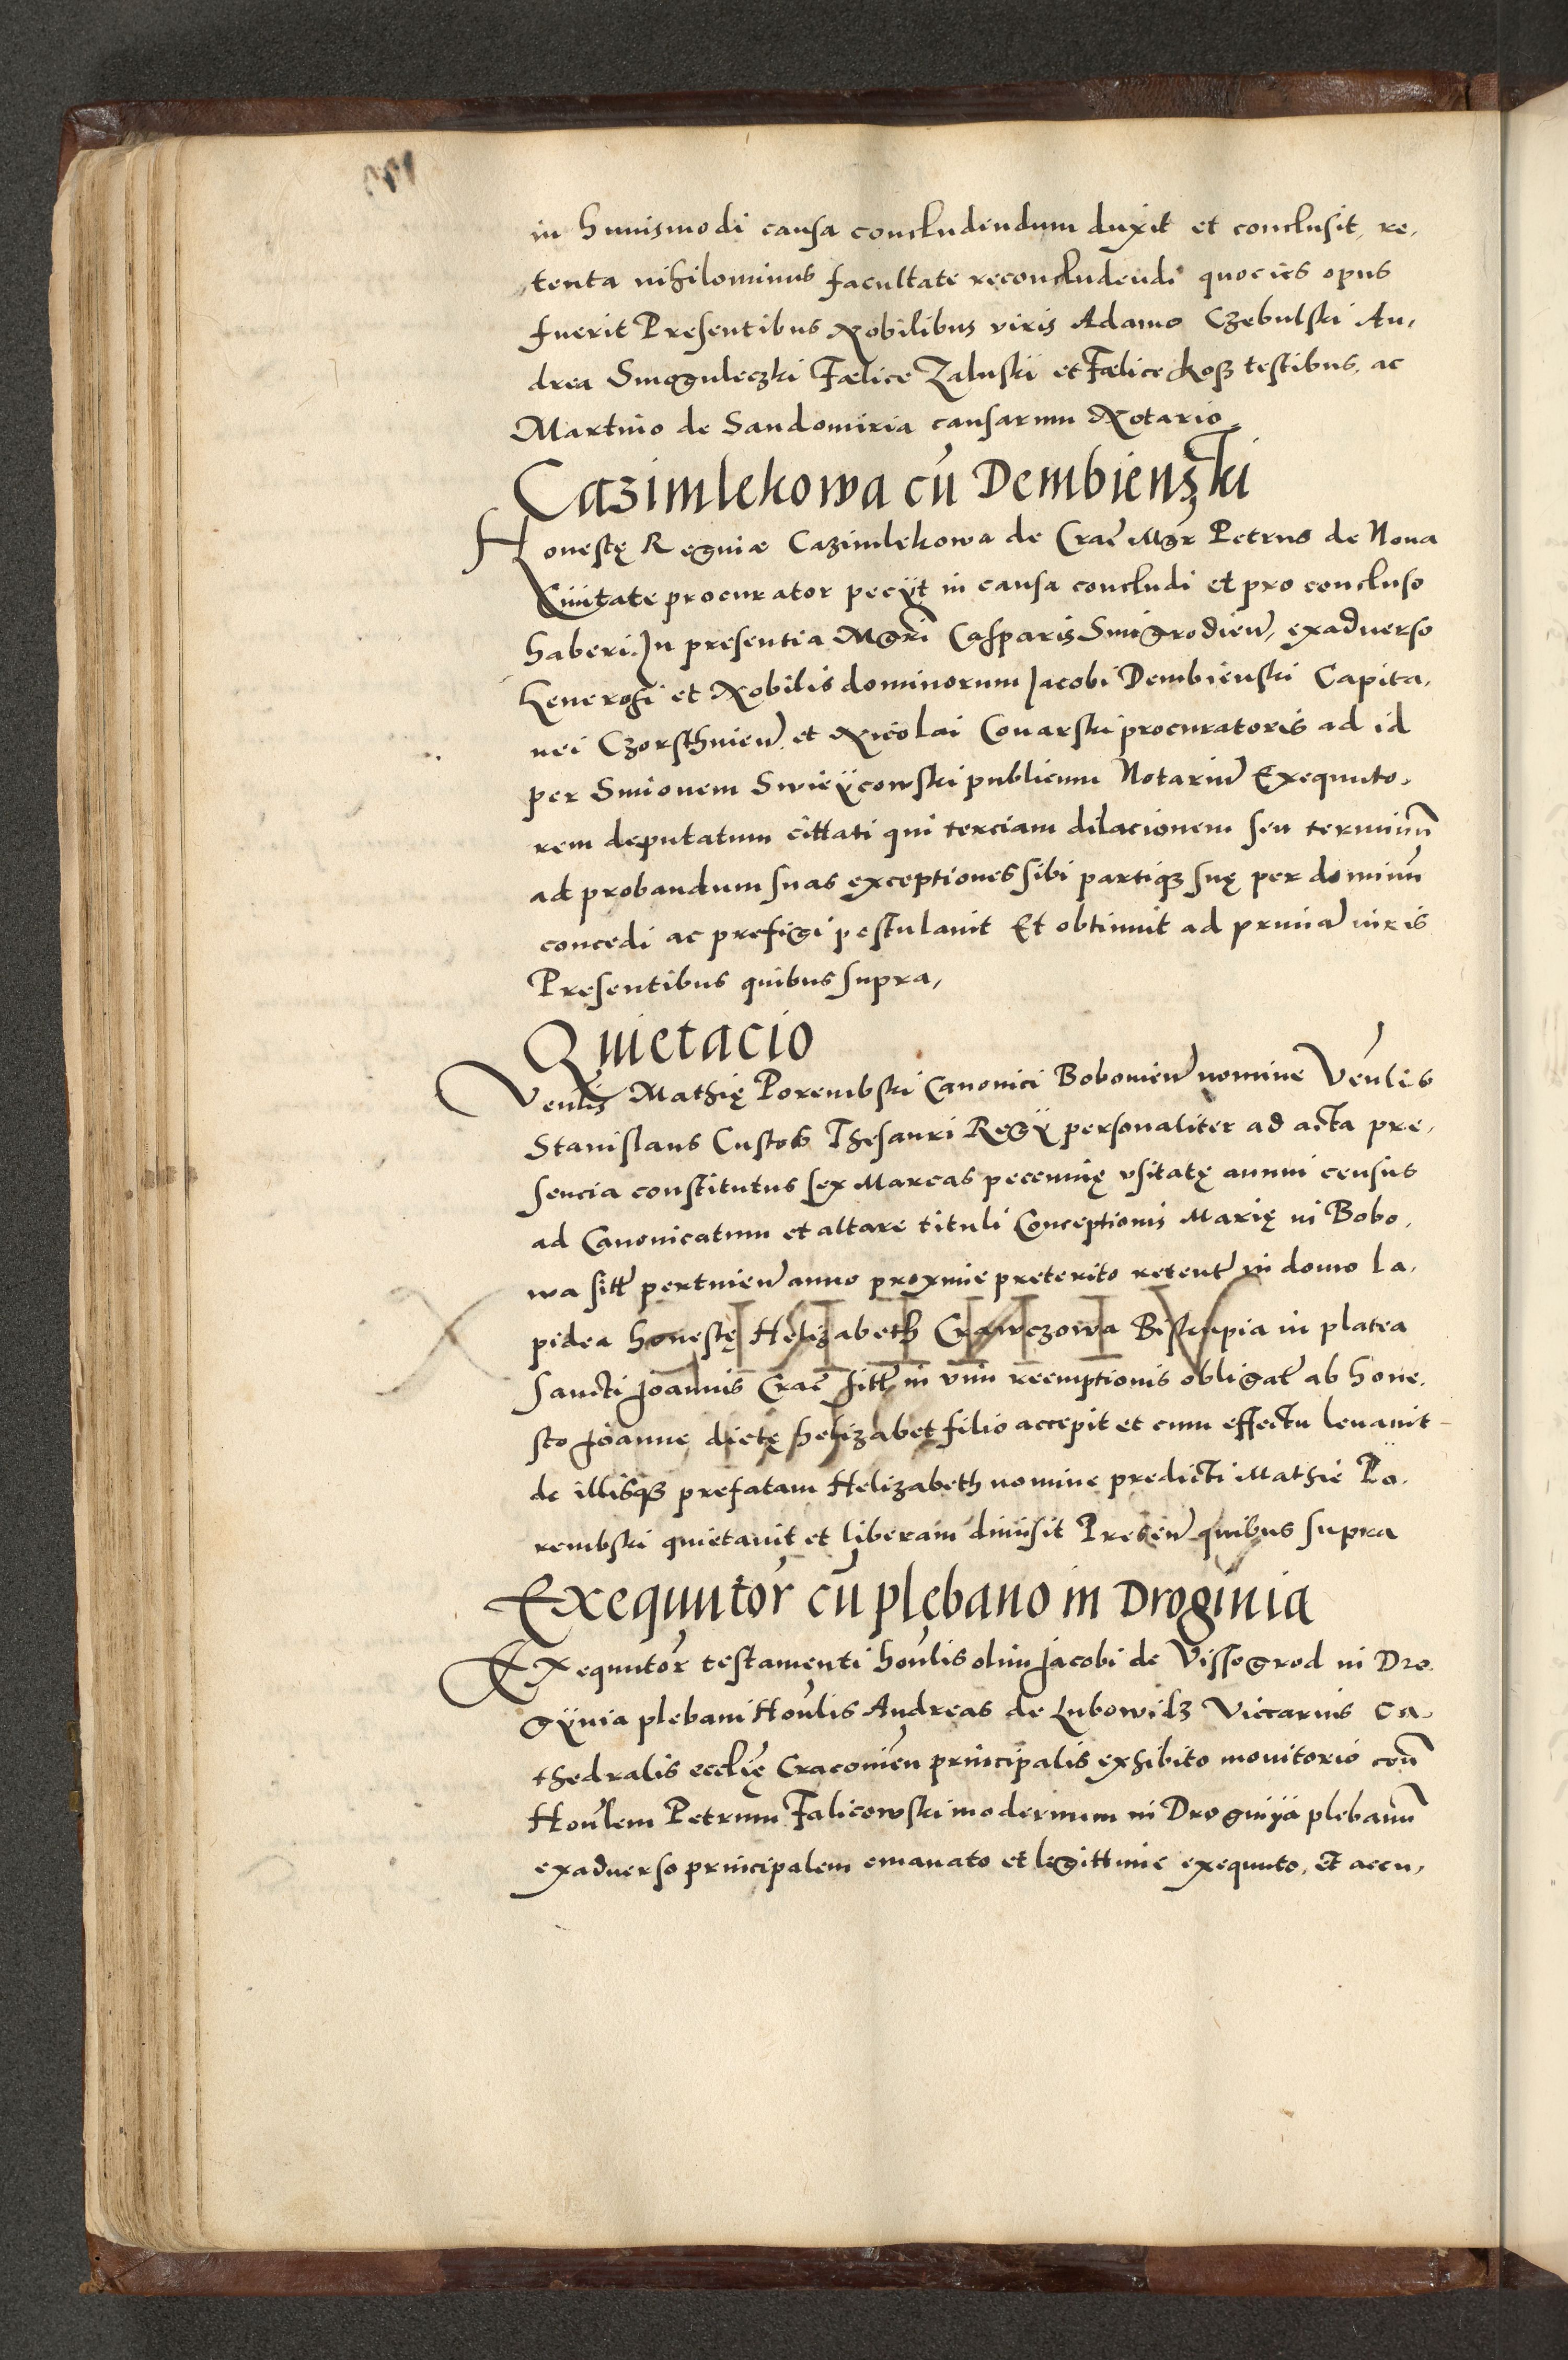 in huiusmodi causa concludendum duxit et conclusit, re,
tenta nihilominus facultate reconcludendi quocies opus
fuerit Presentibus Nobilibus viris Adamo Czebulski An,
drea Smoguleczki Fælice Zaluskii et Fælice Koß testibus, ac
Martino de Sandomiria causarum Notario
Cazimlekowa cū Dembienski
Honestę Reginæ Cazimlekowa de Crac̄ Mgr̄ Petrus de Noua
Ciuitate procurator peciit in causa concludi et pro concluso
haberi. In presentia Mgr̄i Casparis Smigrodien̄, exaduerso
Generosi et Nobilis dominorum Jacobi Dembienski Capita,
nei Czorsthinien̄, et Nicolai Conarski procuratoris ad id
per Simonem Swieÿcowski publicum Notariū Exequuto,
rem deputatum cittati qui terciam dilacionem seu terminū
ad probandum suas exceptiones sibi partiq3 suę per dominū
concedi ac prefigi postulauit Et obtinuit ad primā iuris
Presentibus quibus supra,
Quietacio
Ven̄lis Mathię Porembski Canonici Bobouien̄ nomine Ven̄lis
Stanislaus Custos Thesauri Regÿ personaliter ad acta pre,
sencia constitutus sex Marcas pecunię vsitatę annui census
ad Canonicatum et altare tituli Conceptionis Marię in Bobo,
wa sitt̄ pertinien̄ anno proxime preterito retent̄ in domo la,
pidea honestę Helizabeth Crawczowa Biskupia in platea
sancti Joannis Crac̄ sitt̄ in vim reemptionis obligat̄ ab hone,
sto Joanne dictę helizabet filio accepit et cum effectu leuauit
de illisq3 prefatam Helizabeth nomine predicti Mathie Po,
rembski quietauit et liberam dimisit Presen̄ quibus supra
Exequutor cū plebano in Droginia
Exequutor testamenti hon̄lis olim Jacobi de Vissogrod in Dro,
gÿnia plebani Hon̄lis Andreas de Lubowidz Viccarius Ca,
thedralis eccl̄ię Cracouien̄ principalis exhibito monitorio con̄
Hon̄lem Petrum Falicowski modernum in Droginÿa plebanū
exaduerso principalem emanato et legittime exequuto, et accu,